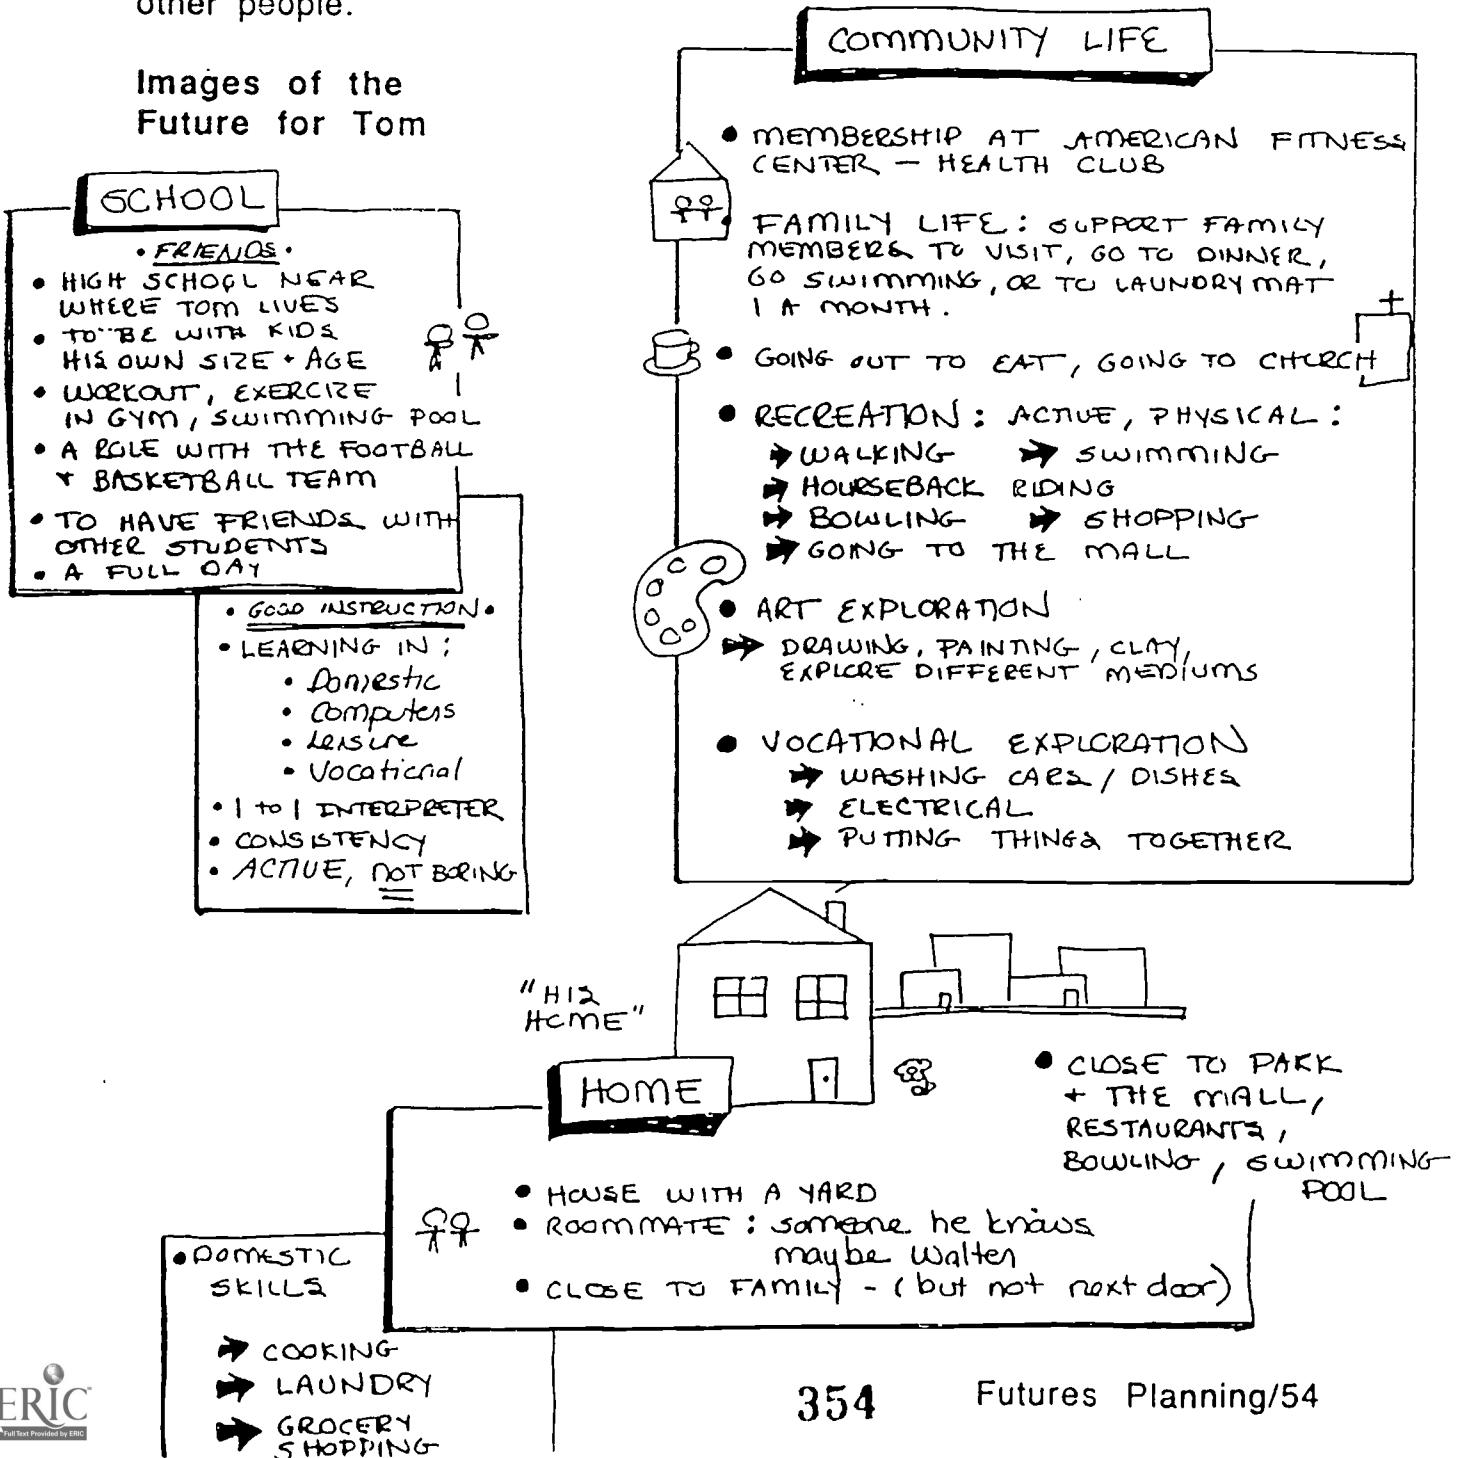 other people.
Images of the
Future for Tom
SCHOOL
• FRIENDS •
• HIGH SCHOOL NEAR
WHERE TOM LIVES
• TO BE WITH KIDS
HIS OWN SIZE + AGE
• WORKOUT, EXERCIZE
IN GYM, SWIMMING POOL
• A ROLE WITH THE FOOTBALL
+ BASKETBALL TEAM
• TO HAVE FRIENDS WITH
OTHER STUDENTS
• A FULL DAY
• GOOD INSTRUCTION •
• LEARNING IN:
• Domestic
• Computers
• Leisure
• Vocational
• 1 to 1 INTERPRETER
• CONSISTENCY
• ACTIVE, NOT BORING
COMMUNITY LIFE
• MEMBERSHIP AT AMERICAN FITNESS
CENTER – HEALTH CLUB
• FAMILY LIFE: SUPPORT FAMILY
MEMBERS TO VISIT, GO TO DINNER,
GO SWIMMING, OR TO LAUNDRY MAT
1 A MONTH.
• GOING OUT TO EAT, GOING TO CHURCH
• RECREATION: ACTIVE, PHYSICAL:
➔ WALKING ➔ SWIMMING
➔ HOURSEBACK RIDING
➔ BOWLING ➔ SHOPPING
➔ GOING TO THE MALL
• ART EXPLORATION
➔ DRAWING, PAINTING, CLAY,
EXPLORE DIFFERENT MEDIUMS
• VOCATIONAL EXPLORATION
➔ WASHING CARS / DISHES
➔ ELECTRICAL
➔ PUTTING THINGS TOGETHER
"HIS
HOME"
HOME
• CLOSE TO PARK
+ THE MALL,
RESTAURANTS,
BOWLING, SWIMMING
POOL
• HOUSE WITH A YARD
• ROOMMATE: someone he knows
maybe Walter
• CLOSE TO FAMILY - (but not next door)
• DOMESTIC
SKILLS
➔ COOKING
➔ LAUNDRY
➔ GROCERY
SHOPPING
354
Futures Planning/54
ERIC
Full Text Provided by ERIC